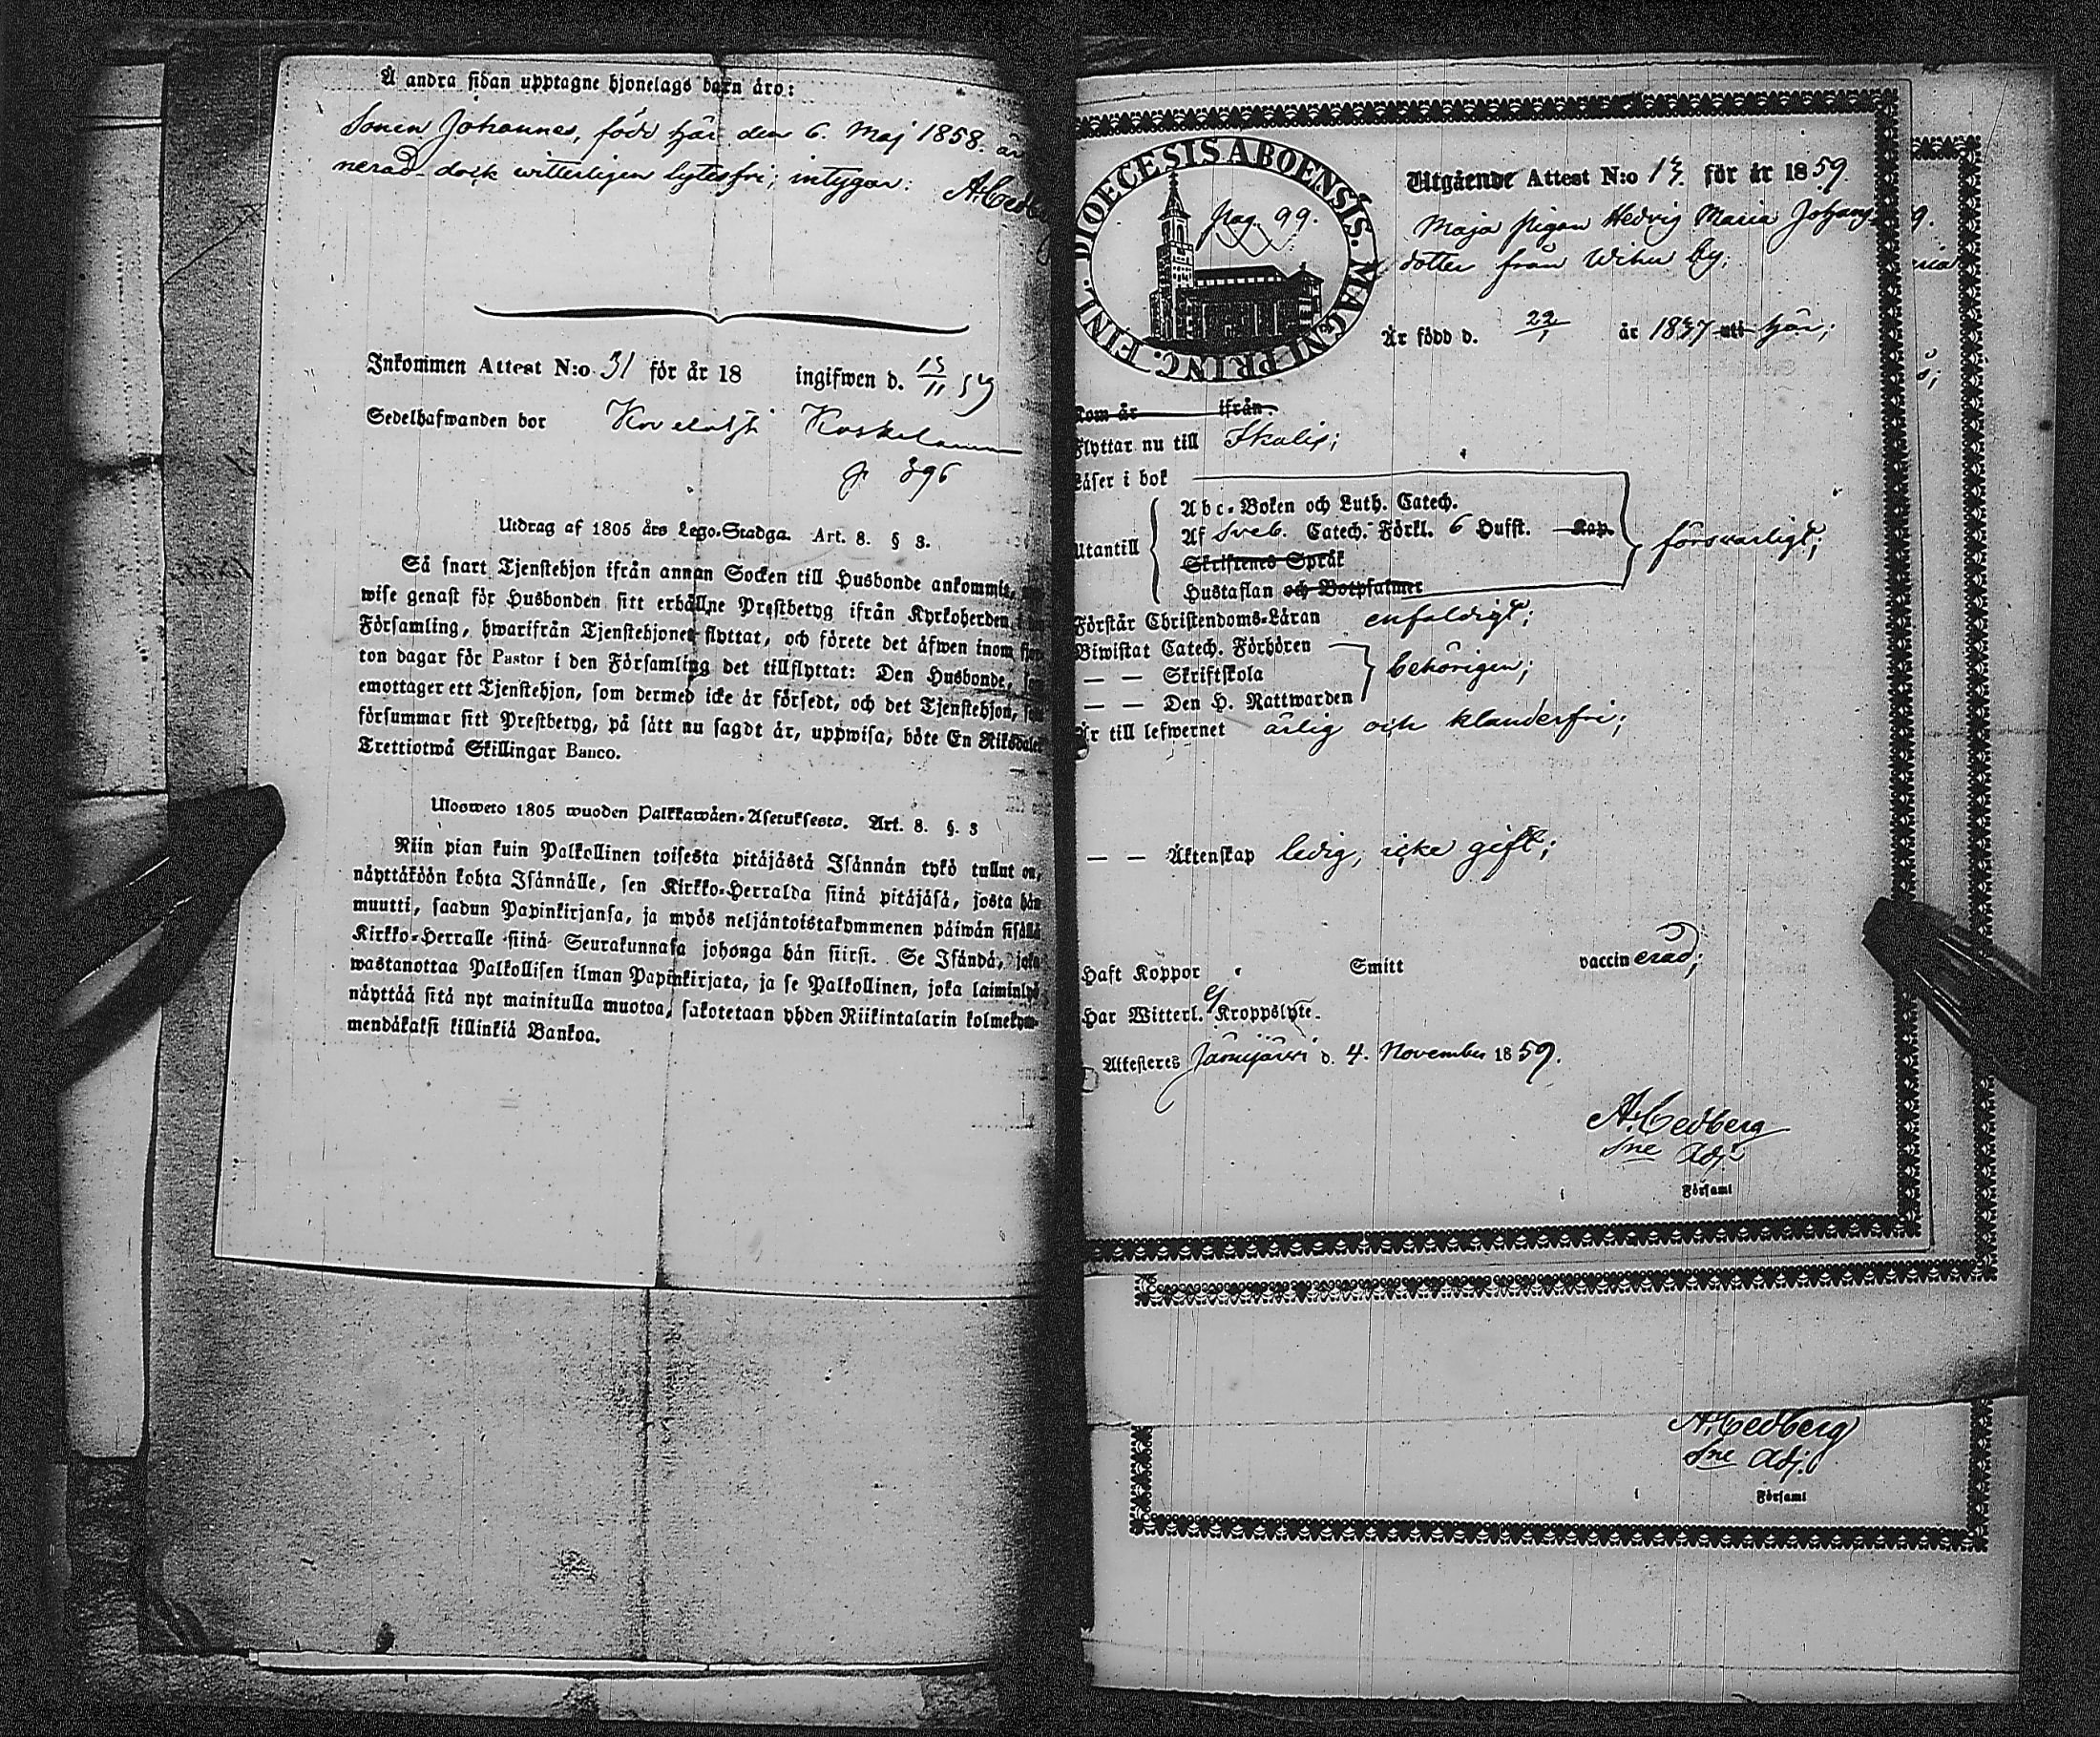 Å andra sidan upptagne hjonelags barn äro:
Sonen Johannes, född här den 6. Maj 1858. är
nerad dock witterligen lytesfri; intygar: A. Cedb
Inkommen Attest N:o 31 för år 18 ingifwen d. 15/11 59
Sedelhafwanden bor Koskela
p 396
Utdrag af 1805 års Lego-Stadga. Art. 8. § 3.
Så snart Tjenstehjon ifrån annan Socken till Husbonde ankommit,
wise genast för Husbonden sitt erhållne Prestbetyg ifrån Kyrkoherden i
Församling, hwarifrån Tjenstehjonet flyttat, och förete det äfwen inom fjor
ton dagar för Pastor i den Församling det tillflyttat: Den Husbonde, som
emottager ett Tjenstehjon, som dermed icke är försedt, och det Tjenstehjon, som
försummar sitt Prestbetyg, på sätt nu sagdt är, uppwisa, böte En Riksdaler
Trettiotwå Skillingar Banco.
Ulosweto 1805 wuoden Palkkawäen-Asetuksesta. Art. 8. §. 3
Niin pian kuin Palkollinen toisesta pitäjästä Isännän tykö tullut on,
näyttäköön kohta Isännälle, sen Kirkko-Herralda siinä pitäjäsä, josta hän
muutti, saadun Papinkirjansa, ja myös neljäntoistakymmenen päiwän sisällä
Kirkko-Herralle siinä Seurakunnasa johonga hän siirsi. Se Isändä, joka
wastanottaa Palkollisen ilman Papinkirjata, ja se Palkollinen, joka laiminlyö
näyttää sitä nyt mainitulla muotoa, sakotetaan yhden Riikintalarin kolmekym-
mendäkaksi killinkiä Bankoa.
DIOECESIS ABOENSIS. MAGNI PRINC. FINL.
pag. 99.
Utgående Attest N:o 17. för år 1859
Maja pigan Hedvig Maria Johans
dotter från Wihu by;
Är född d. 22/ år 1837 uti här;
Kom år ifrån.
Flyttar nu till Ikalis;
Läser i bok
Utantill
Abc-Boken och Luth. Catech.
Af Sveb. Catech. Förkl. 6 Hufst. Kap.
Skriftenes Språk
Hustaflan och Botpsalmer
försvarligt;
Förstår Christendoms-Läran enfaldigt;
Biwistat Catech. Förhören
— — Skriftskola
— — Den H. Nattwarden
behörigen;
Är till lefwernet ärlig och klanderfri;
— — Äktenskap ledig, icke gift;
Haft Koppor Smitt vaccinerad;
Har Witterl. ej Kroppslyte.
Attesteres Jämijärvi d. 4. November 1859.
A. Cedberg
Sne Adj.
i Församl
A. Cedberg
Sne Adj.
i Församl